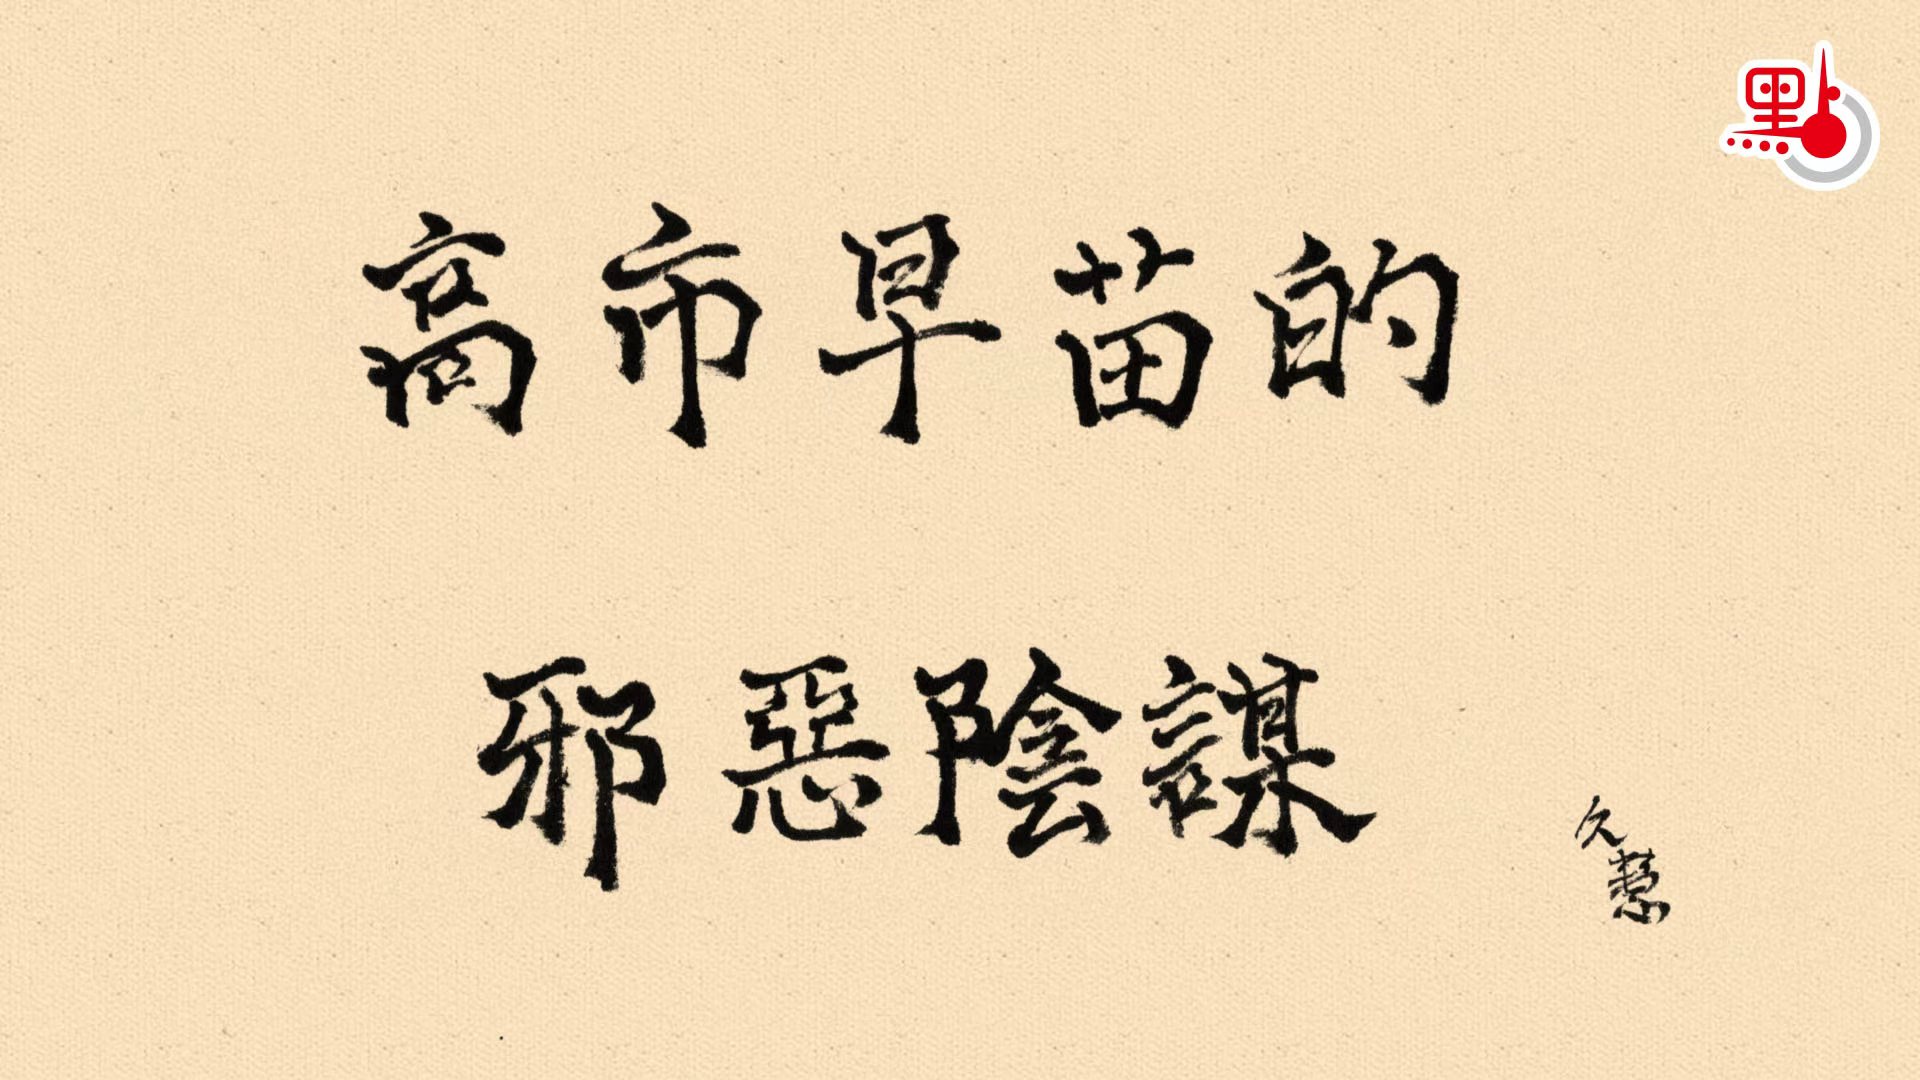 點
高市早苗的
邪惡陰謀
久慧